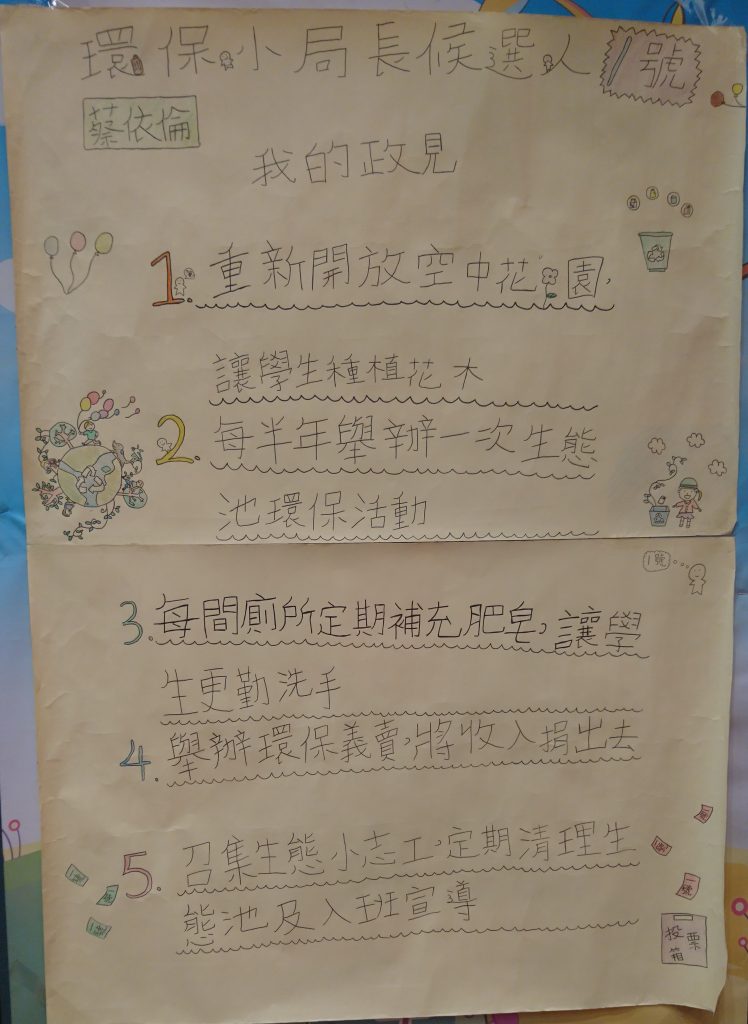 環保小局長候選人 1號
蔡依倫
我的政見
1. 重新開放空中花園,
讓學生種植花木
2. 每半年舉辦一次生態
池環保活動
1號
3. 每間廁所定期補充肥皂,讓學
生更勤洗手
4. 舉辦環保義賣,將收入捐出去
5. 召集生態小志工,定期清理生
態池及入班宣導
1號
1號
1號
一號
投票箱